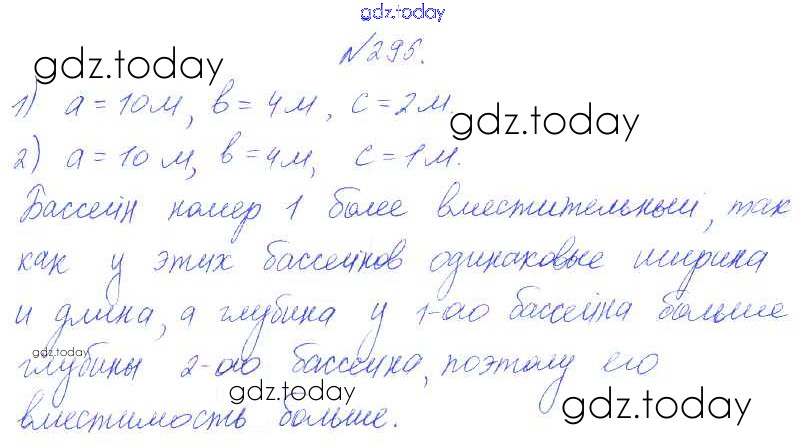 gdz.today
№295.
gdz.today
1) a = 10 м, в = 4 м, с = 2 м.
gdz.today
2) a = 10 м, в = 4 м, с = 1 м.
Бассейн номер 1 более вместительный, так
как у этих бассейнов одинаковые ширина
и длина, а глубина у 1-ао бассейна больше
gdz.today
глубины 2-ао бассейна, поэтому его
gdz.today
gdz.today
вместимость больше.